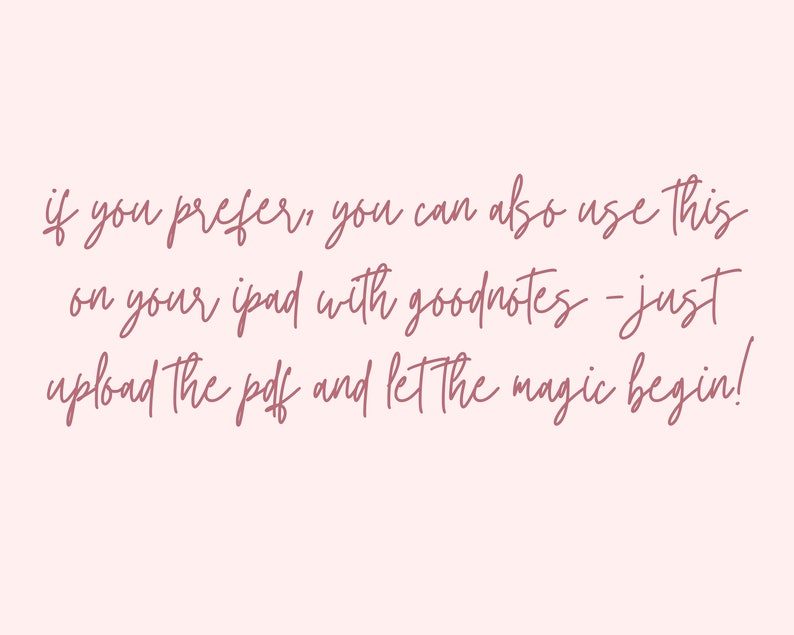 if you prefer, you can also use this
on your ipad with goodnotes - just
upload the pdf and let the magic begin!